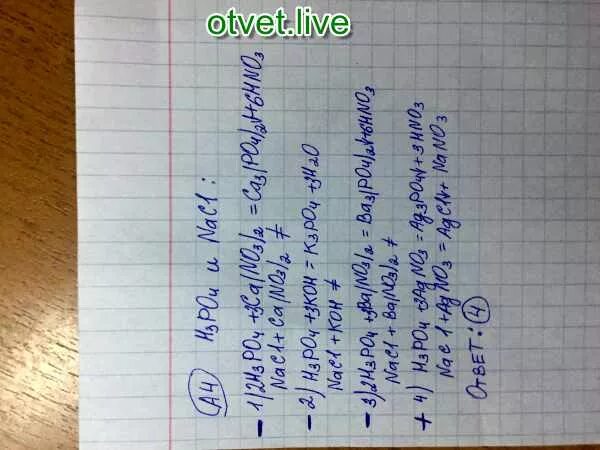 otvet.live
А4 H₃PO₄ и NaCl:
- 1) 2H₃PO₄ + 3Ca(NO₃)₂ = Ca₃(PO₄)₂↓ + 6HNO₃
NaCl + Ca(NO₃)₂ ≠
- 2) H₃PO₄ + 3KOH = K₃PO₄ + 3H₂O
NaCl + KOH ≠
- 3) 2H₃PO₄ + 3Ba(NO₃)₂ = Ba₃(PO₄)₂↓ + 6HNO₃
NaCl + Ba(NO₃)₂ ≠
+ 4) H₃PO₄ + 3AgNO₃ = Ag₃PO₄↓ + 3HNO₃
NaCl + AgNO₃ = AgCl↓ + NaNO₃
Ответ: 4